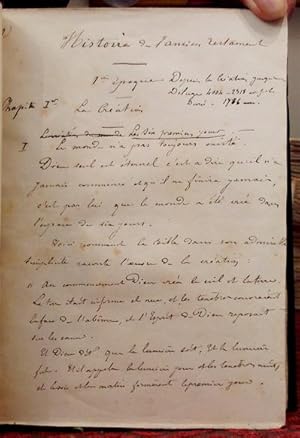 Histoire de l'ancien testament
1re époque Depuis la Création jusqu'au
Déluge 4004 - 2348 av. J.C.
Durée. 1656 ans.
Chapitre Ier La Création
Les six premiers jours
I Le monde n'a pas toujours existé.
Dieu seul est éternel c'est à dire qu'il n'a
jamais commencé et qu'il ne finira jamais,
c'est par lui que le monde a été créé dans
l'espace de six jours.
Voici comment la Bible dans son admirable
simplicité raconte l'œuvre de la création:
« Au commencement Dieu créa le ciel et la terre.
La terre était informe et nue, et les ténèbres couvraient
la face de l'abîme, et l'Esprit de Dieu reposait
sur les eaux.
Et Dieu dit que la lumière soit; et la lumière
fut. Et il appela la lumière jour et les ténèbres nuit,
et le soir et le matin formèrent le premier jour.